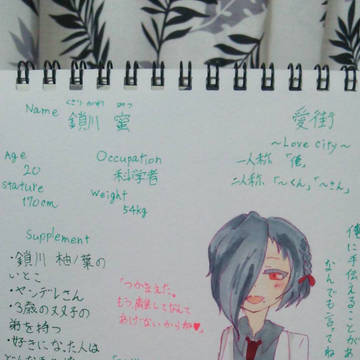 くさりがわ みつ
Name 鎖川 蜜
愛街
～Love city～
一人称「俺」
二人称「～くん」「～さん」
Age
20
Stature
170cm
Occupation
科学者
Weight
54kg
Supplement
・鎖川 柚ノ葉の
いとこ
・ヤンデレさん
・3歳の双子の
弟を持つ
・好きになった人は
「つかまえた。
もう離してなんて
あげないからね♥」
俺に手伝えることが
なんでも言ってね